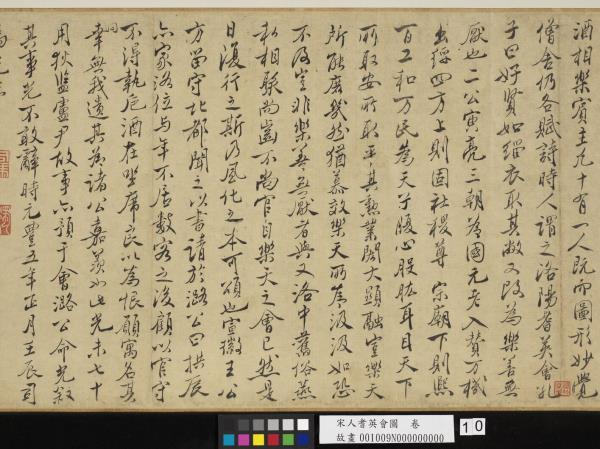 酒相樂賓主凡十有一人既而圖形妙覺
僧舍仍各賦詩時人謂之洛陽耆英會孔
子曰好賢如緇衣取其敝又改為樂善無
厭也二公寅亮三朝為國元老入贊万機
出綏四方上則固社稷尊 宗廟下則熙
百工和万民為天子腹心股肱耳目天下
所取安所取平其勳業閎大顯融豈樂天
所能庶幾然猶慕效樂天所為汲汲如恐
不及豈非樂善無厭者與又洛中舊俗燕
私相聚尚齒不尚官自樂天之會已然是
日復行之斯乃風化之本可頌也宣徽王公
方留守北都聞之以書請於潞公曰拱辰
亦家洛位与年不居數客之後顧以官守
不得執卮酒在坐席良以為恨願寓名其
間幸無我遺其為諸公嘉羨如此光未七十
用狄監盧尹故事亦預于會潞公命光叙
其事光不敢辭時元豐五年正月壬辰司
宋人耆英會圖 卷
故畫 001009N000000000
10